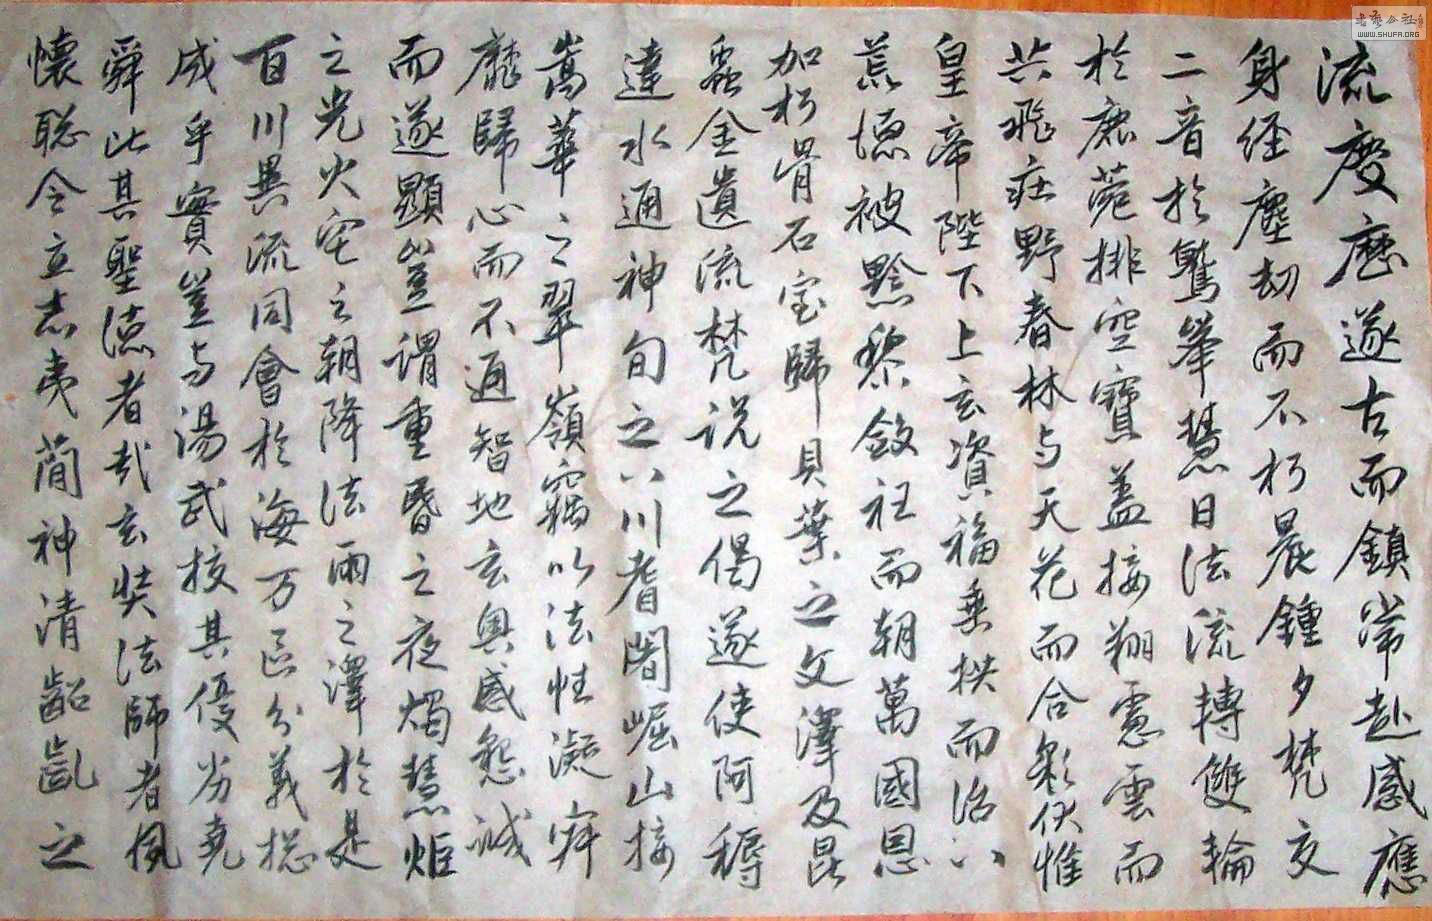 流慶歷遂古而鎮常赴感應
身經塵劫而不朽晨鍾夕梵交
二音於鷲峯慧日法流轉雙輪
於鹿菀排空寶蓋接翔雲而
共飛莊野春林与天花而合彩伏惟
皇帝陛下上玄資福垂拱而治八
荒德被黔黎斂衽而朝萬國恩
加朽骨石室歸貝葉之文澤及昆
蟲金遺流梵说之偈遂使阿耨
達水通神甸之八川耆闍崛山接
嵩華之翠嶺竊以法性凝寂
靡歸心而不通智地玄奧感懇誠
而遂顯豈謂重昏之夜燭慧炬
之光火宅之朝降法雨之澤於是
百川異流同會於海万區分義揔
成乎實豈与湯武校其優劣堯
舜比其聖德者哉玄奘法師者夙
懷聡令立志夷簡神清齠齔之
WWW.SHUFA.ORG